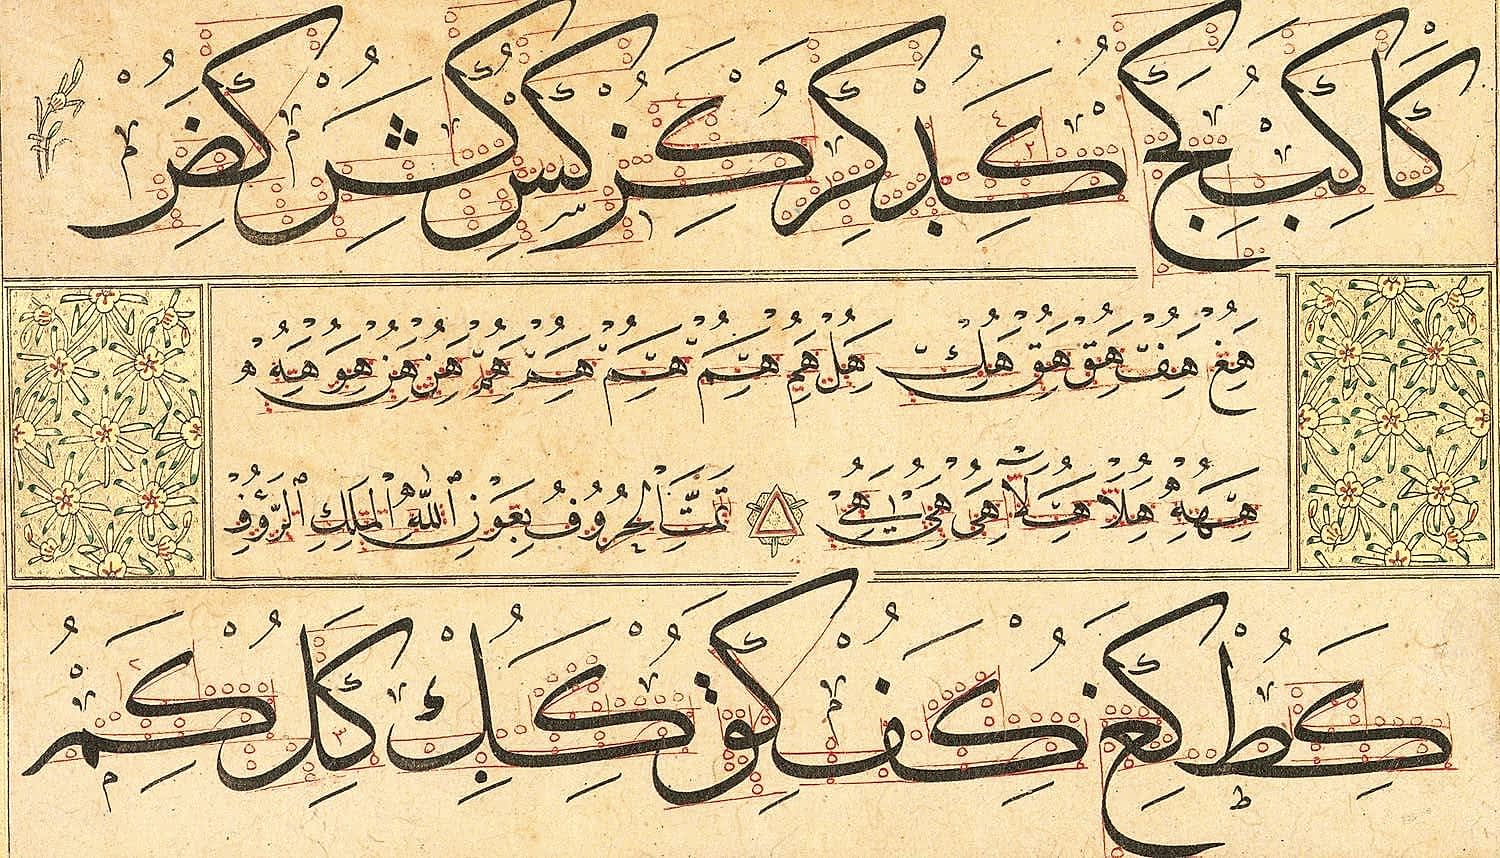 كا كب كج كد كر كز كس كش كض
هغ هف هق هق هك هل هم هم هم هم هم هن هن هو هه
هلا هلا هى هى هى تمت الحروف بعون الله الملك الرؤف
كط كع كف كق كك كل كم